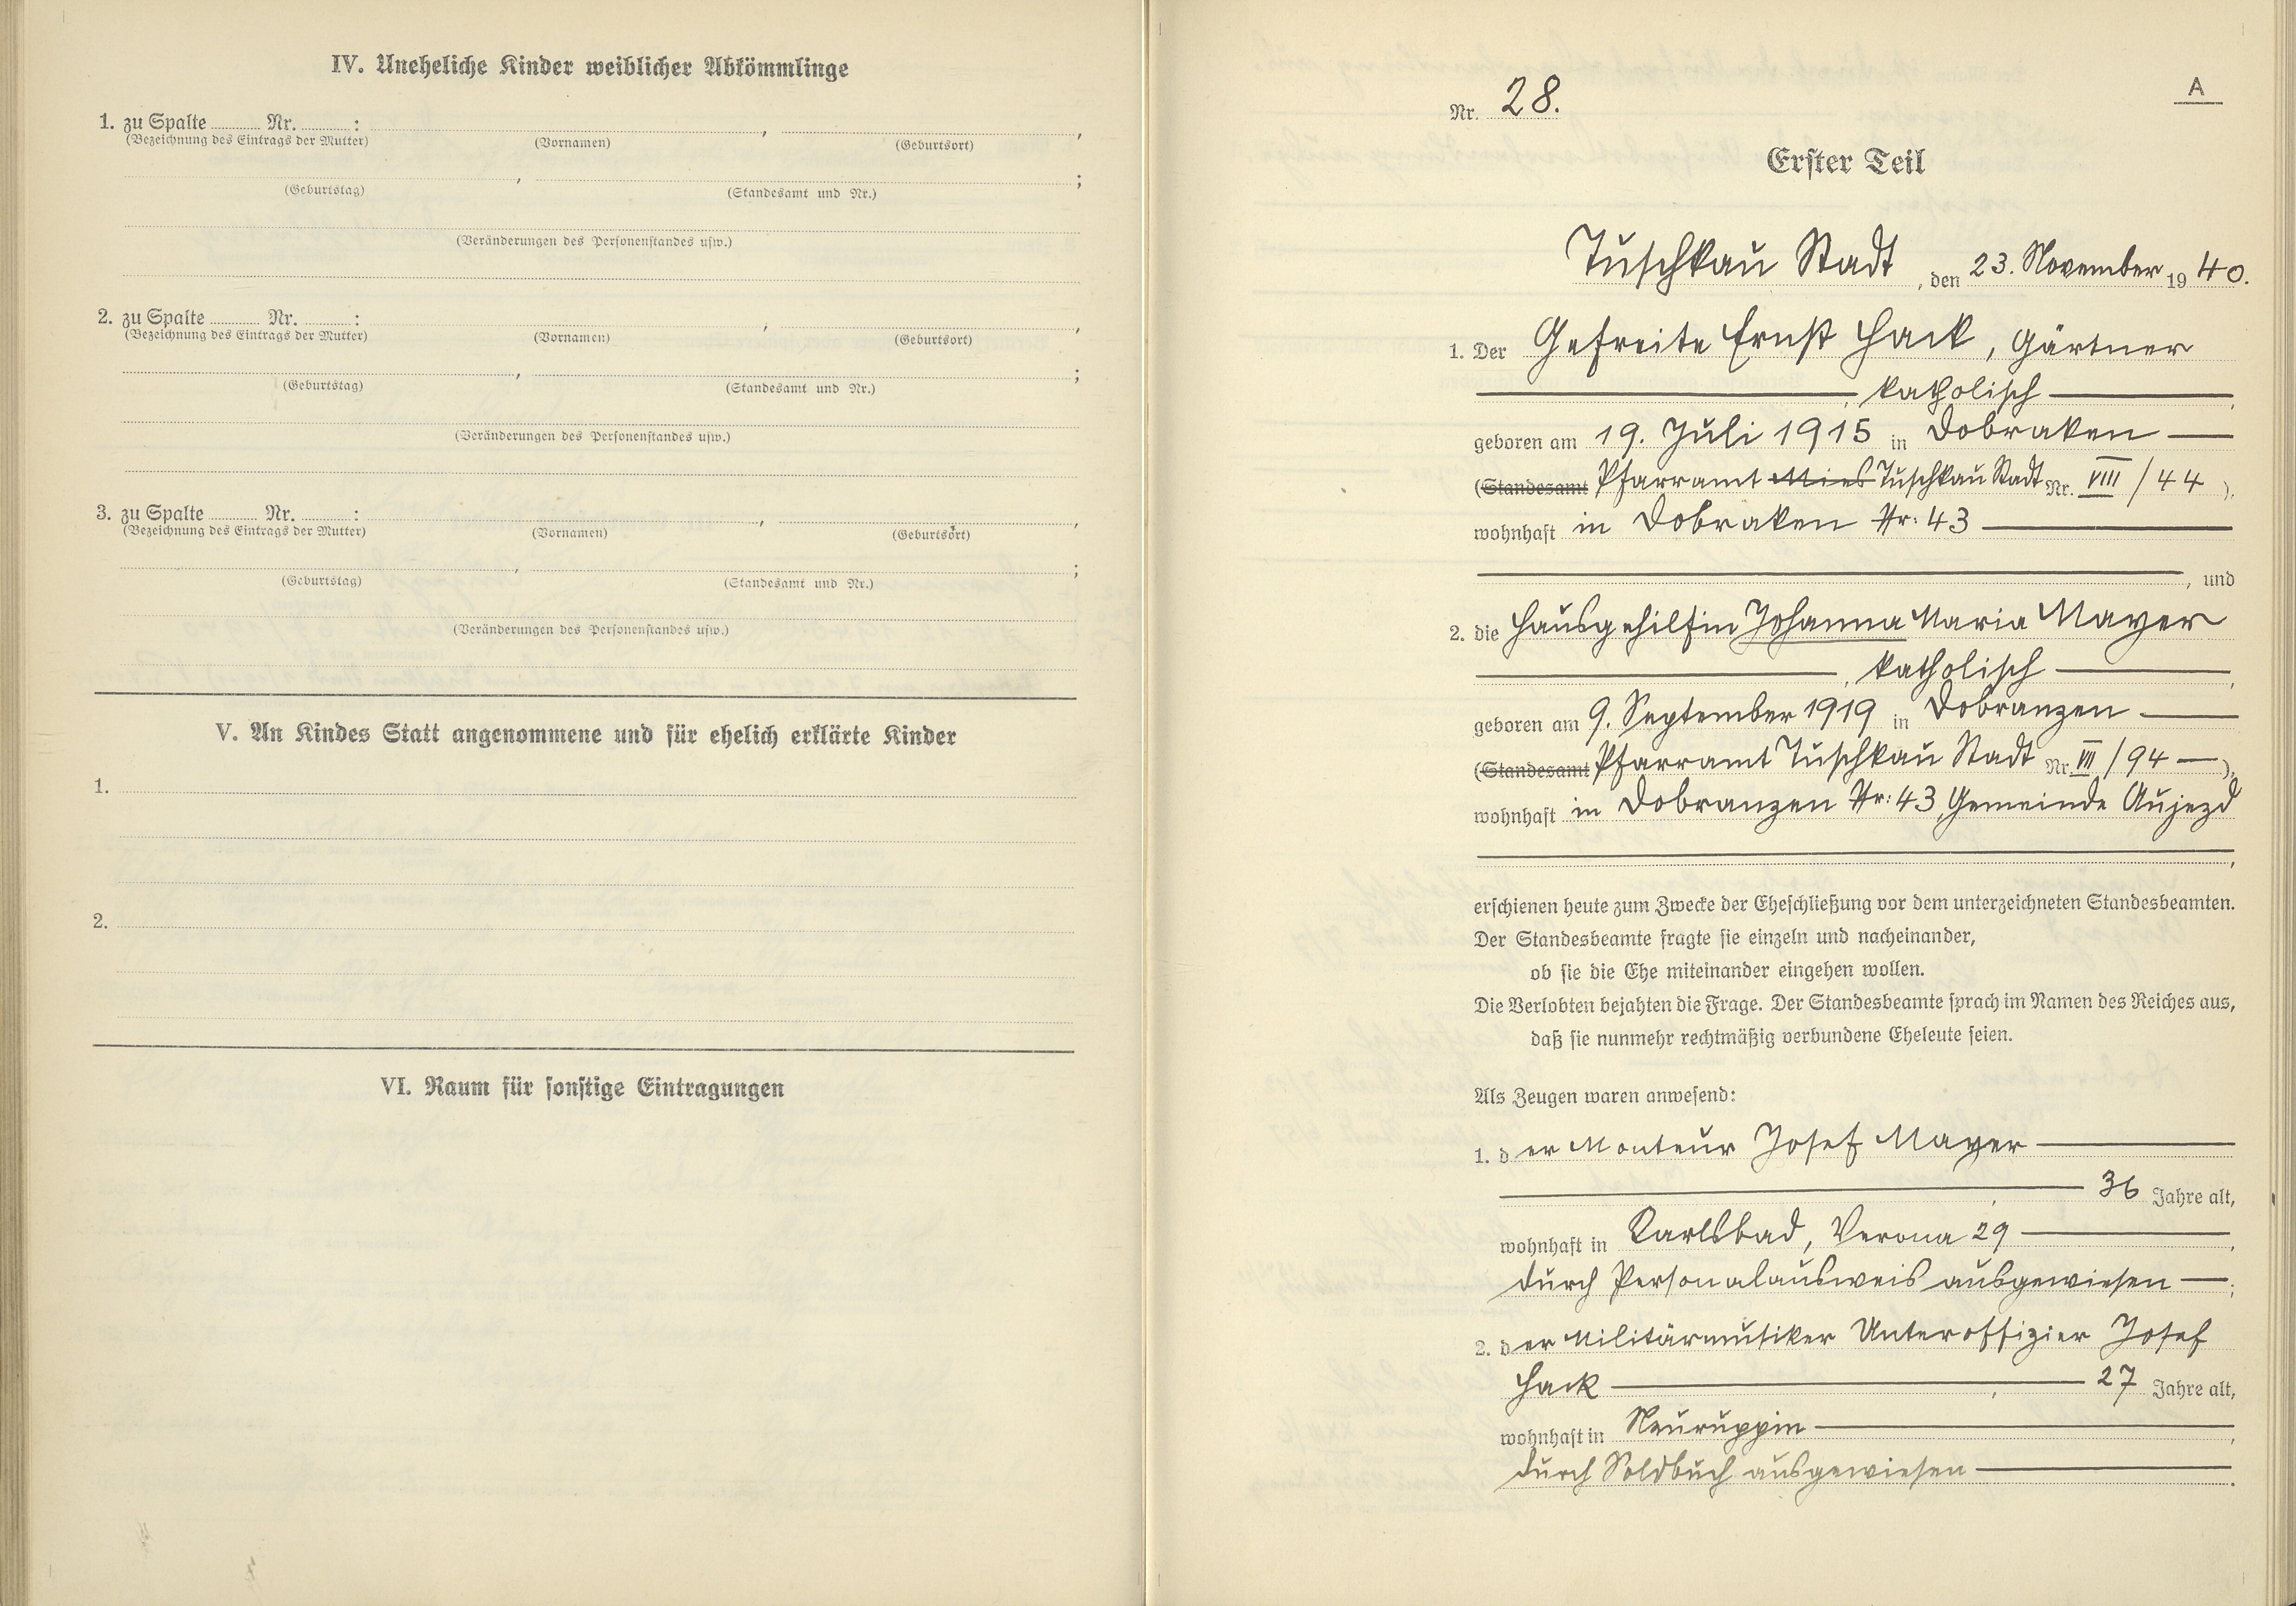 IV. Uneheliche Kinder weiblicher Abkömmlinge
1. zu Spalte ........ Nr. ........ : , ,
(Bezeichnung des Eintrags der Mutter) (Vornamen) (Geburtsort)
, ;
(Geburtstag) (Standesamt und Nr.)
(Veränderungen des Personenstandes usw.)
2. zu Spalte ........ Nr. ........ : , ,
(Bezeichnung des Eintrags der Mutter) (Vornamen) (Geburtsort)
, ;
(Geburtstag) (Standesamt und Nr.)
(Veränderungen des Personenstandes usw.)
3. zu Spalte ........ Nr. ........ : , ,
(Bezeichnung des Eintrags der Mutter) (Vornamen) (Geburtsort)
, ;
(Geburtstag) (Standesamt und Nr.)
(Veränderungen des Personenstandes usw.)
V. An Kindes Statt angenommene und für ehelich erklärte Kinder
1.
2.
VI. Raum für sonstige Eintragungen
A
Nr. 28.
Erster Teil
Tuschkau Stadt, den 23. November 1940.
1. Der Gefreite Ernst Hack, Gärtner
, katholisch ,
geboren am 19. Juli 1915 in Dobraken
(Standesamt Pfarramt Mies Tuschkau Stadt Nr. VIII / 44 ),
wohnhaft in Dobraken Nr: 43
, und
2. die Hausgehilfin Johanna Maria Mayer
, katholisch ,
geboren am 9. September 1919 in Dobranzen
(Standesamt Pfarramt Tuschkau Stadt Nr. VII / 94 ),
wohnhaft in Dobranzen Nr: 43, Gemeinde Aujezd
,
erschienen heute zum Zwecke der Eheschließung vor dem unterzeichneten Standesbeamten.
Der Standesbeamte fragte sie einzeln und nacheinander,
ob sie die Ehe miteinander eingehen wollen.
Die Verlobten bejahten die Frage. Der Standesbeamte sprach im Namen des Reiches aus,
daß sie nunmehr rechtmäßig verbundene Eheleute seien.
Als Zeugen waren anwesend:
1. der Monteur Josef Mayer
, 36 Jahre alt,
wohnhaft in Karlsbad, Verona 29 ,
durch Personalausweis ausgewiesen ;
2. der Militärmusiker Unteroffizier Josef
Hack , 27 Jahre alt,
wohnhaft in Neuruppin ,
durch Soldbuch ausgewiesen .